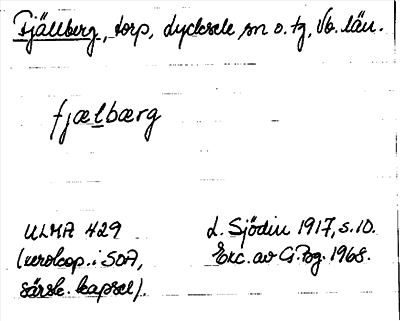 Fjällberg, torp, Lycksele sn o. tg, Vb. län.
fjælbærg
ULMA 429
(xerokop. i SOA,
särsk. kapsel).
L. Sjödin 1917, s. 10.
Exc. av G. Bg. 1968.